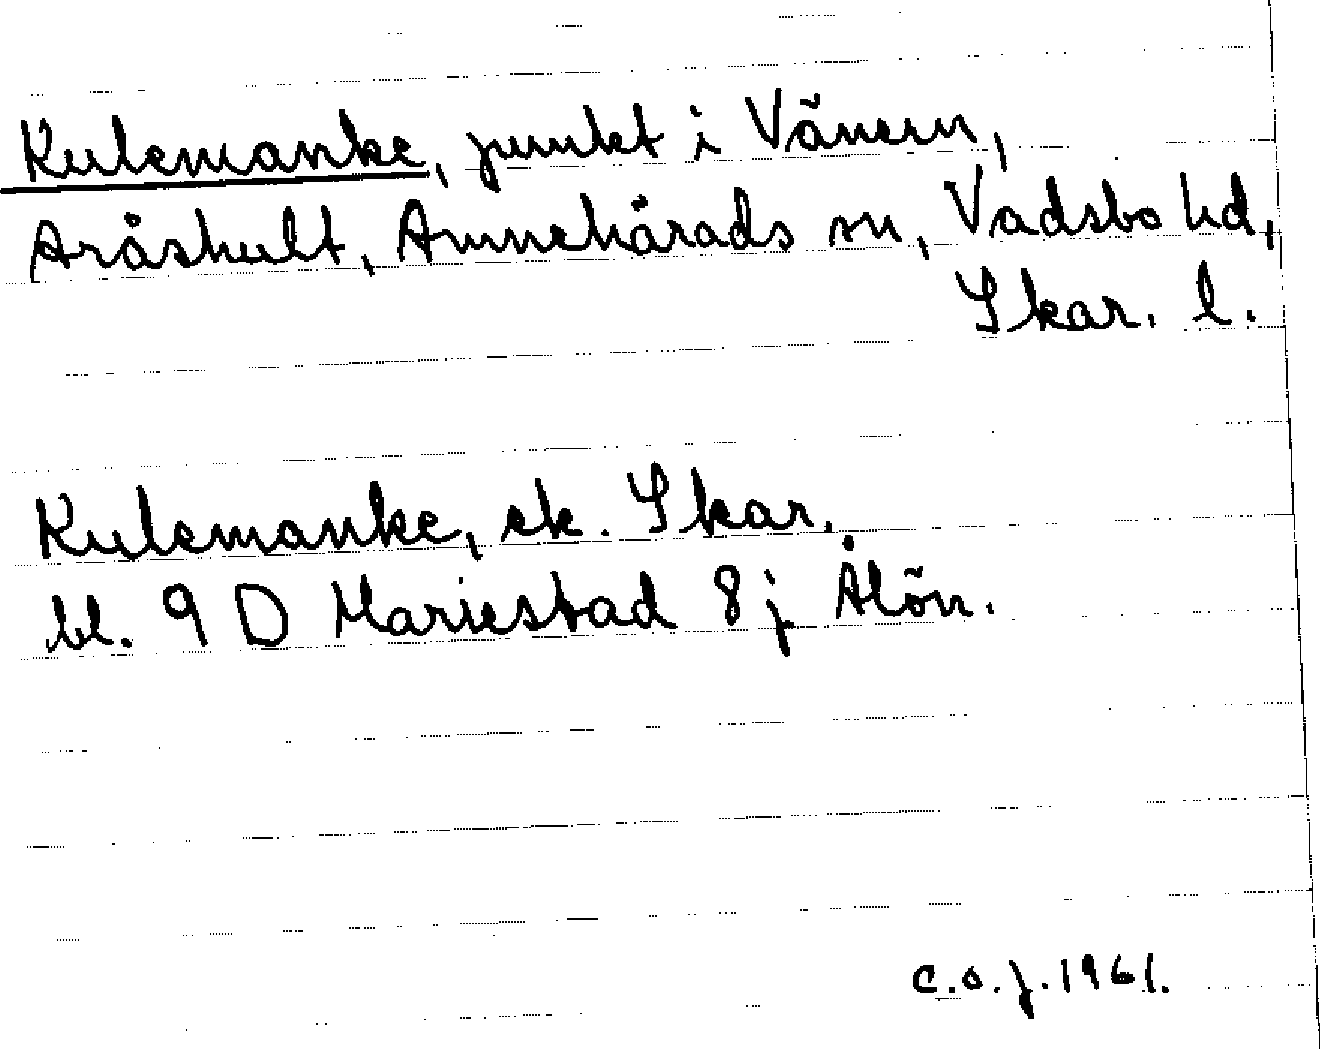 Kulemanke, punkt i Vänern,
Aråshult, Amnehärads sn, Vadsbo hd,
Skar. l.
Kulemanke, ek. Skar.
bl. 9 D Mariestad 8 j Ålön.
C.O.J. 1961.